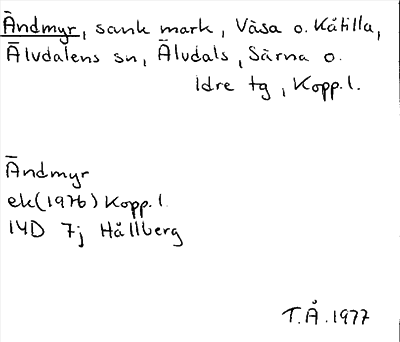 Ändmyr, sank mark, Våsa o. Kåtilla,
Älvdalens sn, Älvdals, Särna o.
Idre tg, Kopp. l.
Ändmyr
ek (1976) Kopp. l.
14D 7j Hållberg
T.Å. 1977